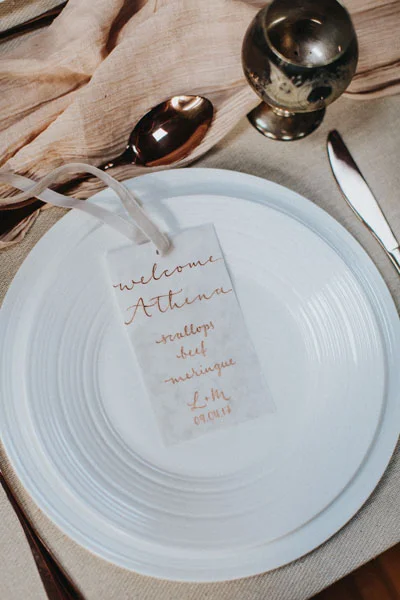 welcome
Athena
scallops
beef
meringue
L+M
09.04.16